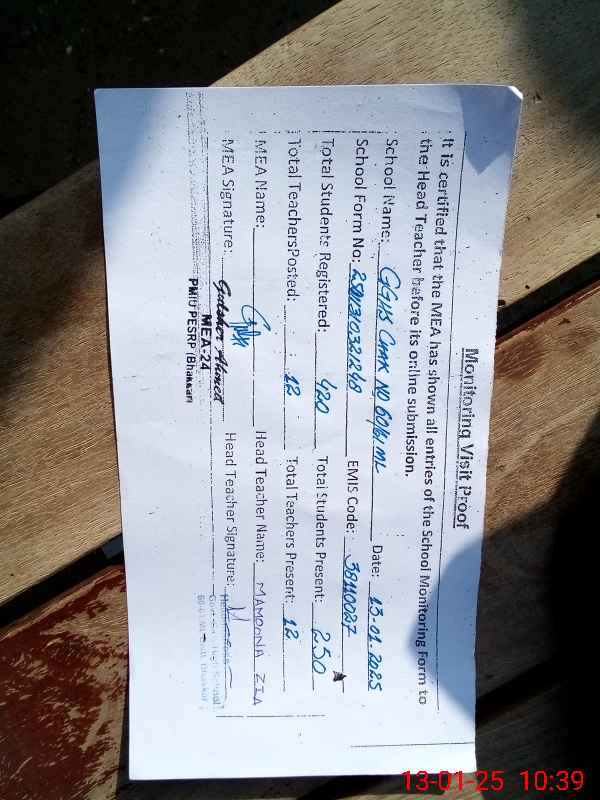 Monitoring Visit Proof
It is certified that the MEA has shown all entries of the School Monitoring Form to
the Head Teacher before its online submission.
School Name: GGHS CHAK NO 60/61 ML Date: 13-01-2025
School Form No: EMIS Code: 38110027
Total Students Registered: 420 Total Students Present: 250
Total TeachersPosted: 12 Total Teachers Present: 12
MEA Name: Head Teacher Name: MAMOONA ZIA
MEA Signature: Head Teacher Signature:
Gulsher Ahmed
MEA-24
PMIU-PESRP (Bhakkar)
High School
13-01-25 10:39